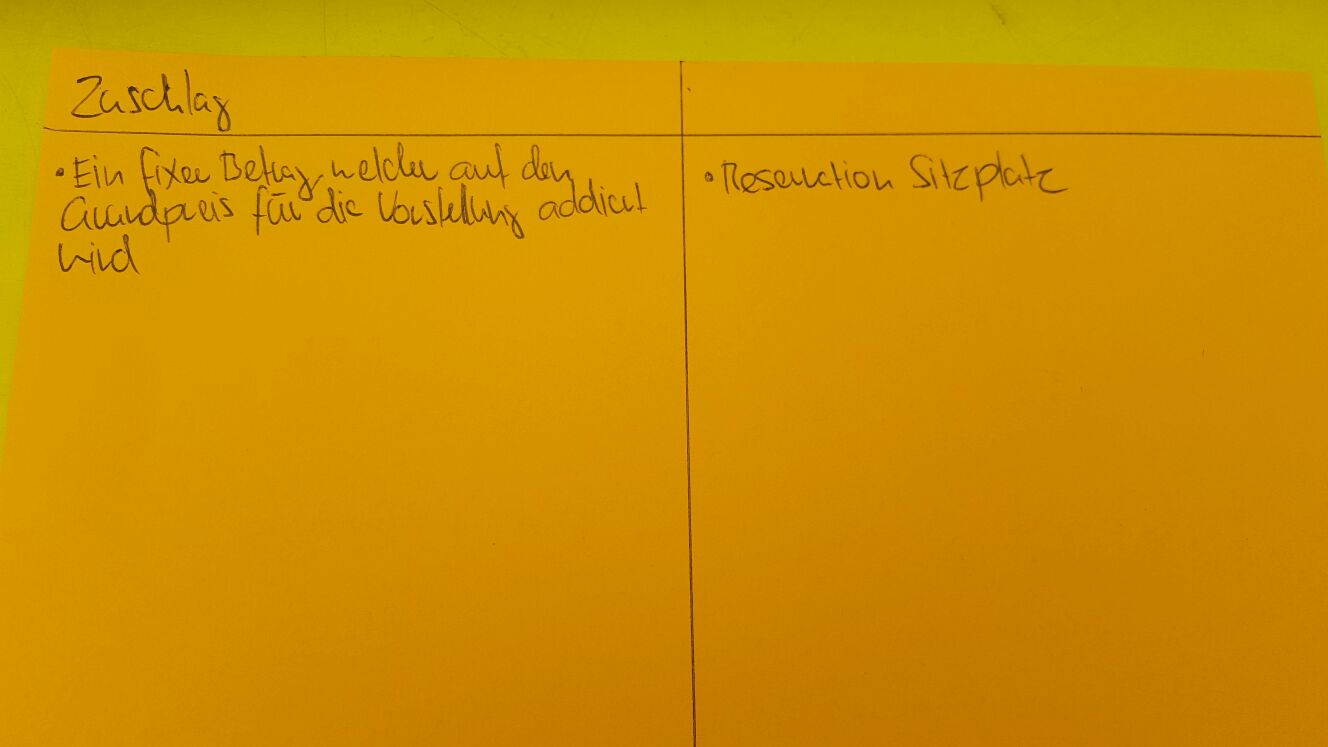 Zuschlag
• Ein fixer Betrag, welcher auf den
Grundpreis für die Vorstellung addiert
wird
• Reservation Sitzplatz